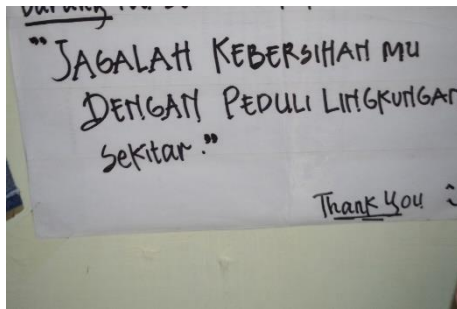 "JAGALAH KEBERSIHAN MU
DENGAN PEDULI LINGKUNGAN
sekitar."
Thank You